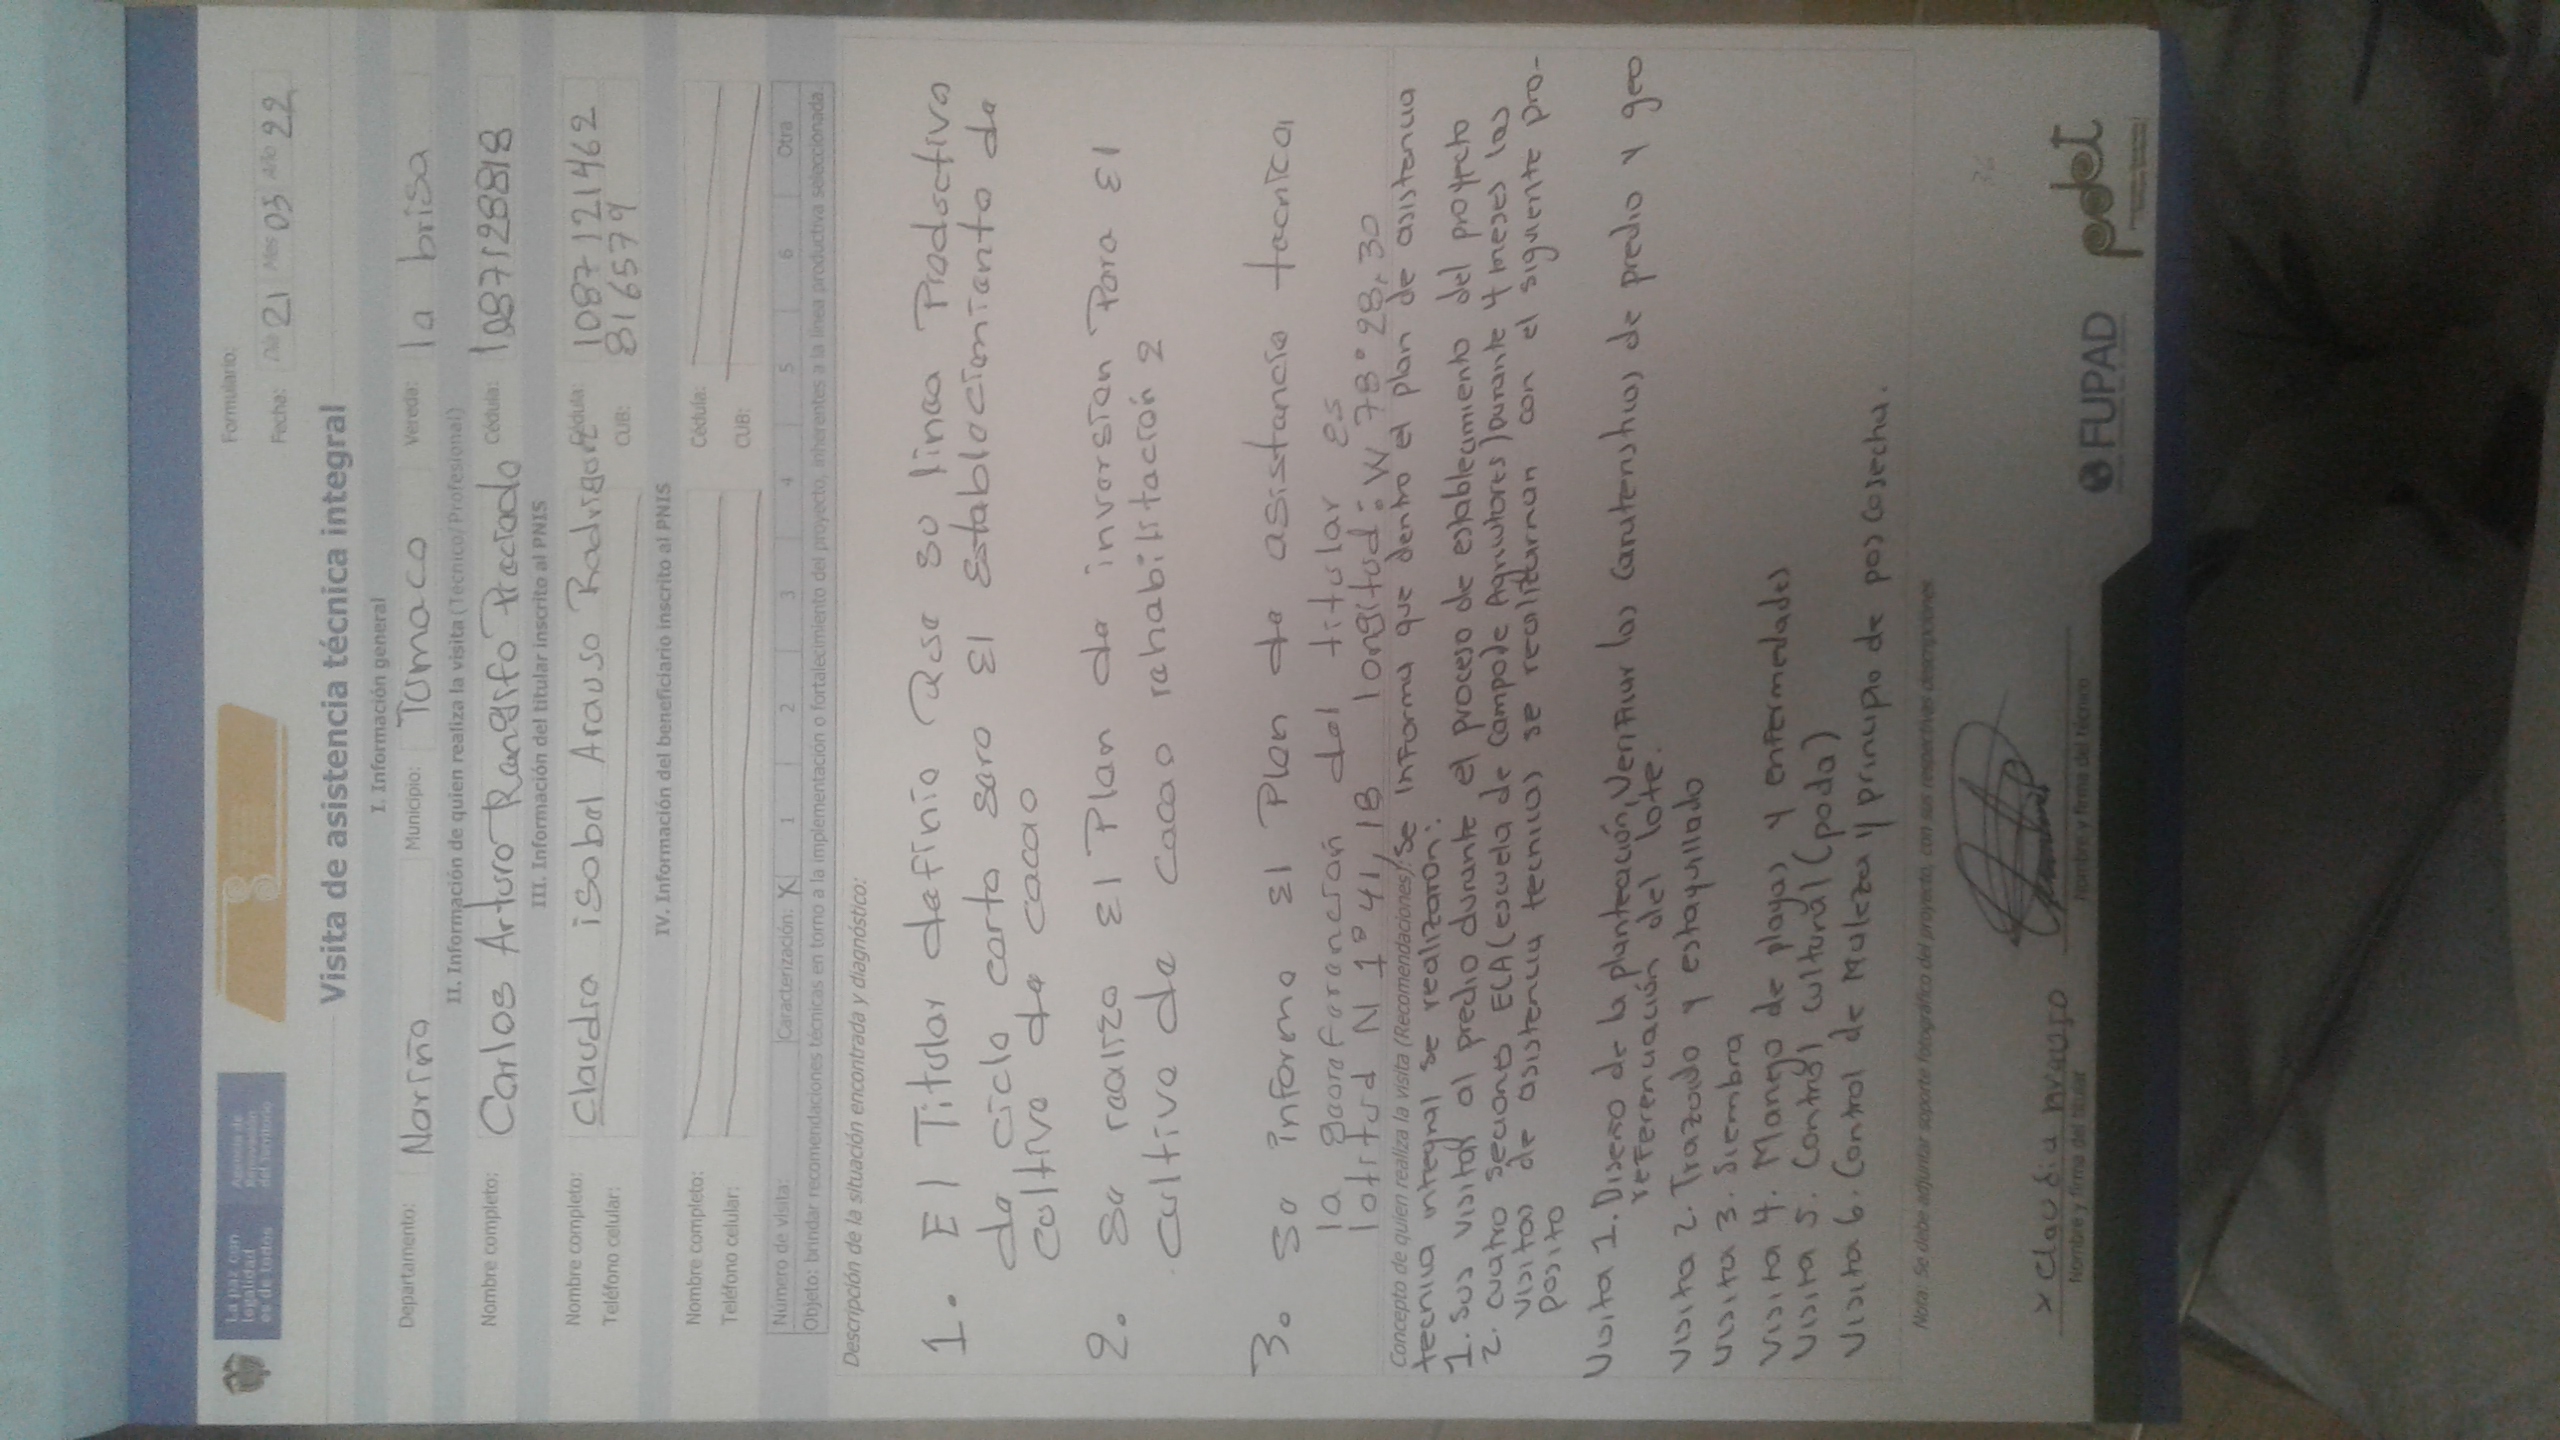 La paz con
legalidad
es de todos
Agencia de
Renovación
del Territorio
Formulario:
Fecha: Día 21 Mes 03 Año 22
Visita de asistencia técnica integral
I. Información general
Departamento: Nariño Municipio: Tumaco Vereda: la brisa
II. Información de quien realiza la visita (Técnico/Profesional)
Nombre completo: Carlos Arturo Rengifo Preciado Cédula: 1087128818
III. Información del titular inscrito al PNIS
Nombre completo: Claudia isabel Arauso Rodrigez Cédula: 1087121462
Teléfono celular: CUB: 816579
IV. Información del beneficiario inscrito al PNIS
Nombre completo: Cédula:
Teléfono celular: CUB:
Número de visita: Caracterización: X 1 2 3 4 5 6 Otra
Objeto: brindar recomendaciones técnicas en torno a la implementación o fortalecimiento del proyecto, inherentes a la línea productiva seleccionada.
Descripción de la situación encontrada y diagnóstico:
1. El Titular definio Que su linea Productiva
de ciclo corto sera El Establecimiento de
cultivo de cacao
2. Se realizo El Plan de inversion Para El
cultivo de cacao rehabilitación 2
3. Se informo El Plan de asistencia tecnica
la georeferencion del titular es
latitud N 1° 41, 18 longitud: W 78° 28, 30
Concepto de quien realiza la visita (Recomendaciones): Se informa que dentro el plan de asistencia
tecnica integral se realizaron:
1. Sus visitas al predio durante el proceso de establecimiento del proyecto
2. cuatro seciones ECA (escuela de Campo de Agricultores) Durante 4 meses las
visitas de asistencia tecnicas se realizarnan con el siguiente pro-
posito
Visita 1. Diseño de la planteación, Verificar las Caracteristicas de predio y geo
referenciación del lote.
Visita 2. Trazado y estaquillado
Visita 3. Siembra
Visita 4. Manejo de plagas y enfermedades
Visita 5. Control cultural (poda)
Visita 6. Control de Maleza y principio de pos cosecha.
Nota: Se debe adjuntar soporte fotográfico del proyecto, con sus respectivas descripciones
x Claudia Arauso
Nombre y firma del titular
Nombre y firma del técnico
FUPAD
pdet